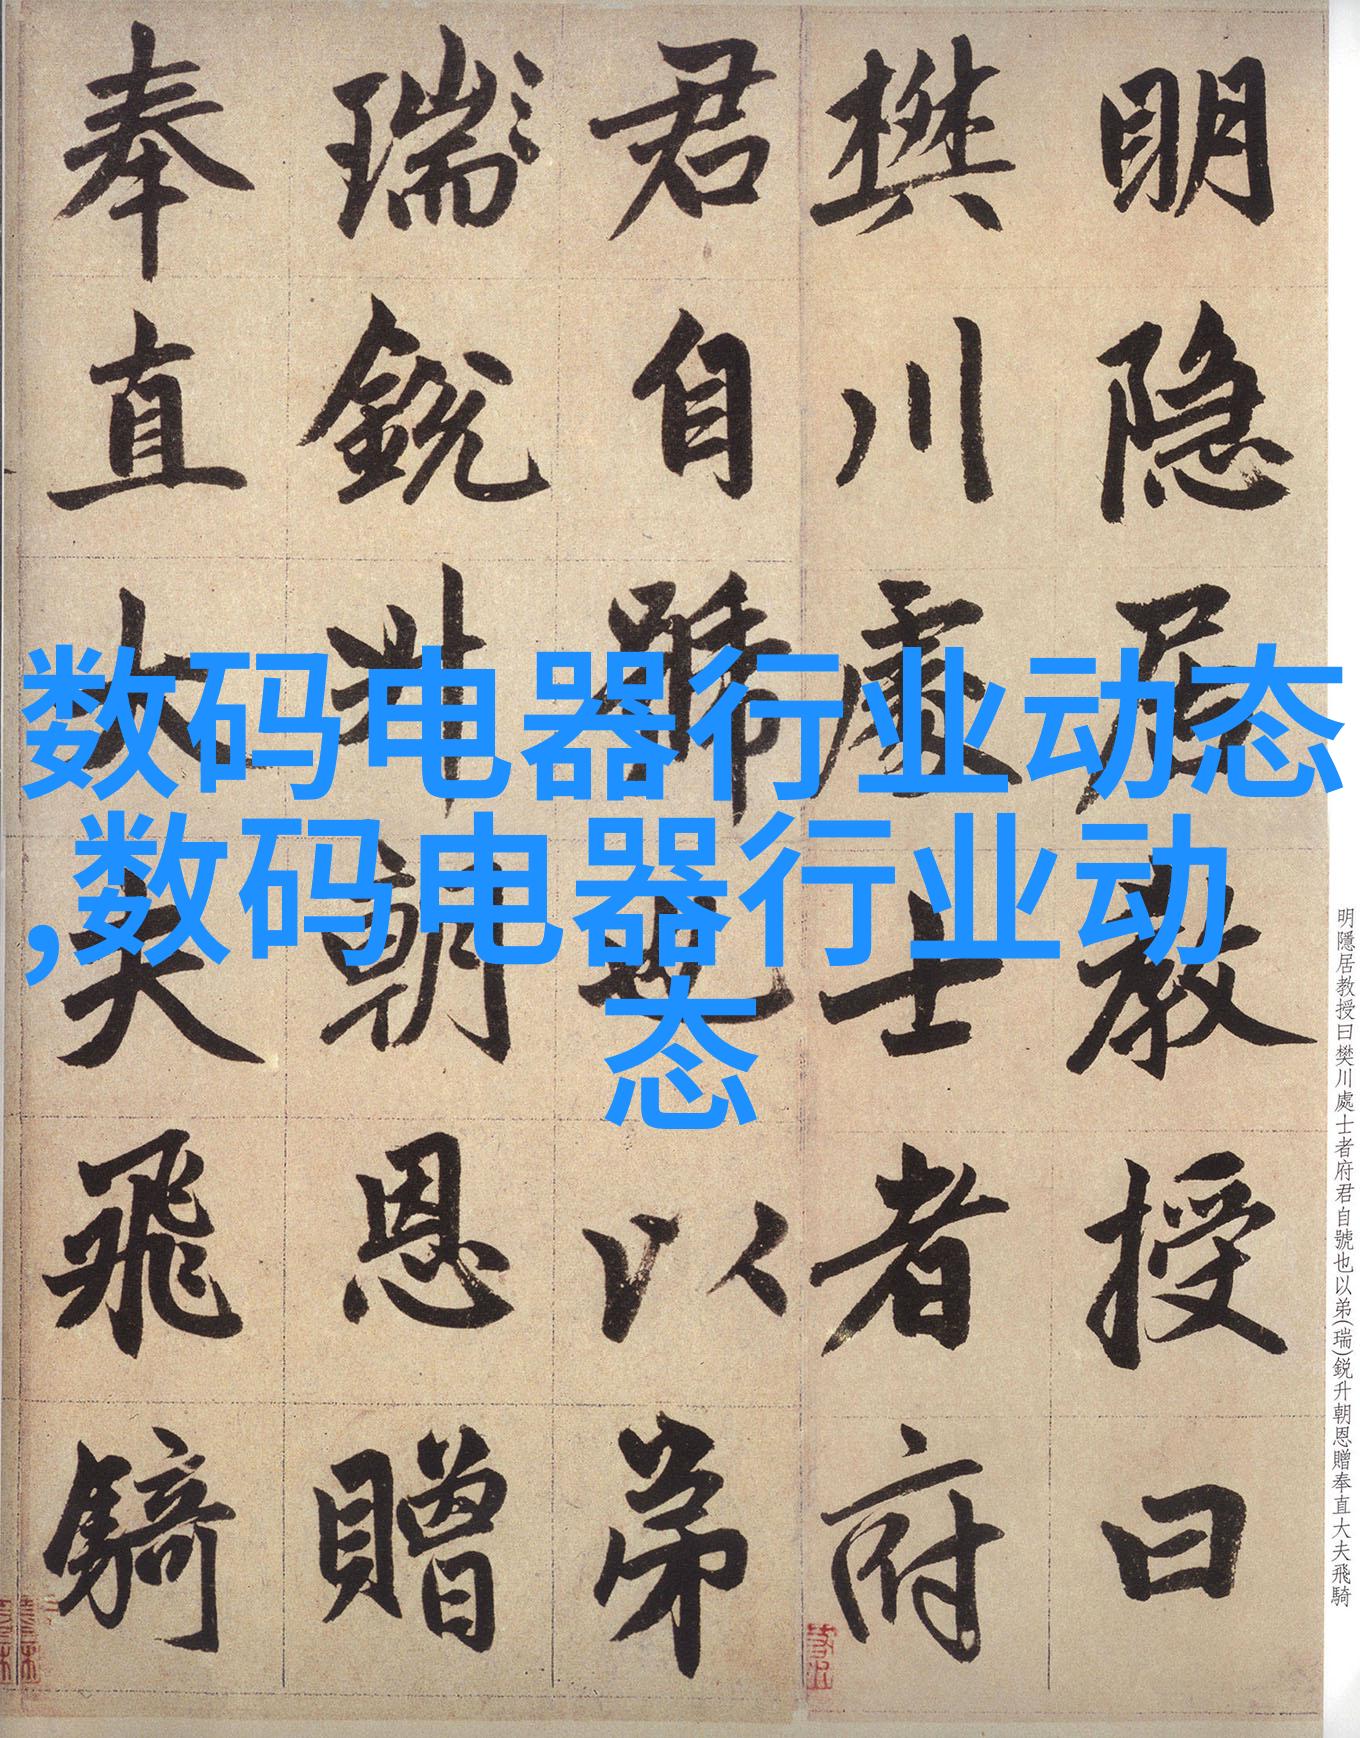 数码电器行业动态
,数码电器行业动
态
明隐居教授曰
樊川處士者府
君自號也以弟
瑞鋭升朝恩贈
奉直大夫飛騎
明隱居教授曰樊川處士者府君自號也以弟(瑞)鋭升朝恩贈奉直大夫飛騎